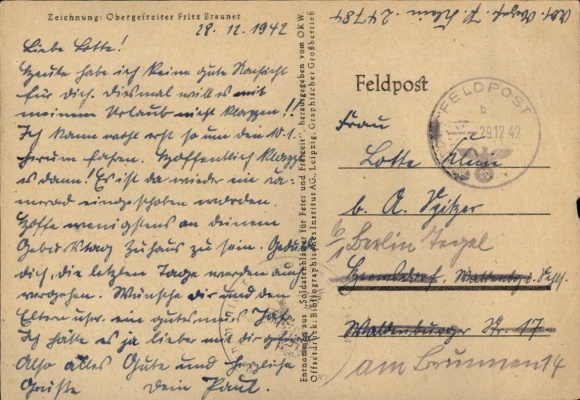 Zeichnung: Obergefreiter Fritz Brauner
28.12.1942
Liebe Lotte!
Heute habe ich keine gute Nachricht
für dich. Diesmal will es mit
meinem Urlaub nicht klappen!!
Ich kann wohl erst so um den 10.1.
herum fahren. Hoffentlich klappt
es dann! Es ist da wieder ein Ka-
merad eingeschoben worden.
Hoffe wenigstens an deinem
Geburtstag zuhaus zu sein. Gedulde
dich, die letzten Tage werden auch
vergehen. Wünsche dir und den
Eltern usw. ein gutes neues Jahr.
Ich hätte es ja lieber mit dir
Also alles Gute und herzliche
Grüße Dein Paul.
Entnommen aus „Soldatenblätter für Feier und Freizeit“, herausgegeben vom OKW.
Offsetdruck: Bibliographisches Institut AG., Leipzig, Graphischer Großbetrieb
24784
Feldpost
FELDPOST
b
29.12.42
Frau
Lotte Klein
b. A. Spitzer
Berlin Tegel
Hermsdorf,
Waldenburger Str. 17
am Brunnen 14